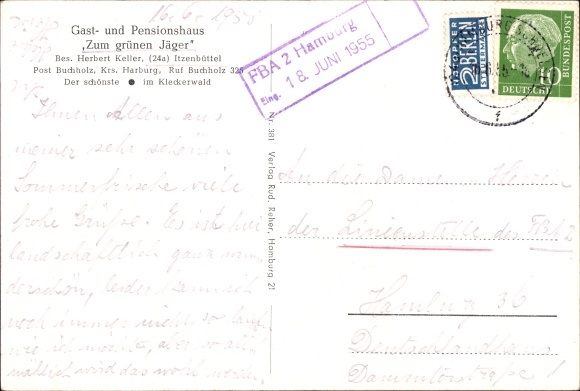 16.6.1955
Gast- und Pensionshaus
„Zum grünen Jäger"
Bes. Herbert Keller, (24a) Itzenbüttel
Post Buchholz, Krs. Harburg, Ruf Buchholz 325
Der schönste ● im Kleckerwald
Ihnen Allen aus
meiner sehr schönen
Sommerfrische viele
frohe Grüße. Es ist hier
landschaftlich ganz wun-
derschön, leider kann ich
noch immer nicht so laufen
wie ich möchte, aber so all-
mählich wird das wohl werden.
Nr. 381 Verlag Rud. Reher, Hamburg 21
FBA 2 Hamburg
Eing. 18. JUNI 1955
NOTOPFER
2 BERLIN
STEUERMARKE
10
DEUTSCHE BUNDESPOST
An die Damen Herren
der Linienstelle des FBA 2
Hamburg 36
Deutschlandhaus
Dammtorstraße 1